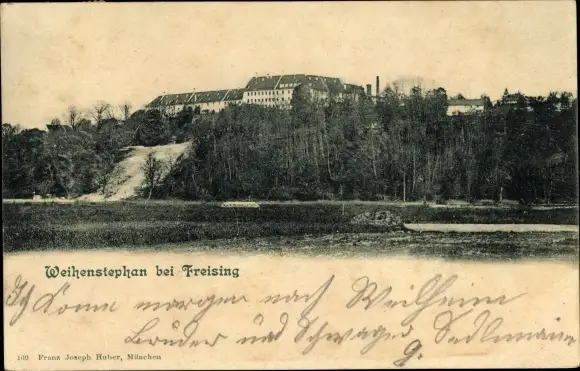 Weihenstephan bei Freising
Ich komme morgen nach Weilheim
Bruder und Schwager Sedlmaier
G.
169 Franz Joseph Huber, München